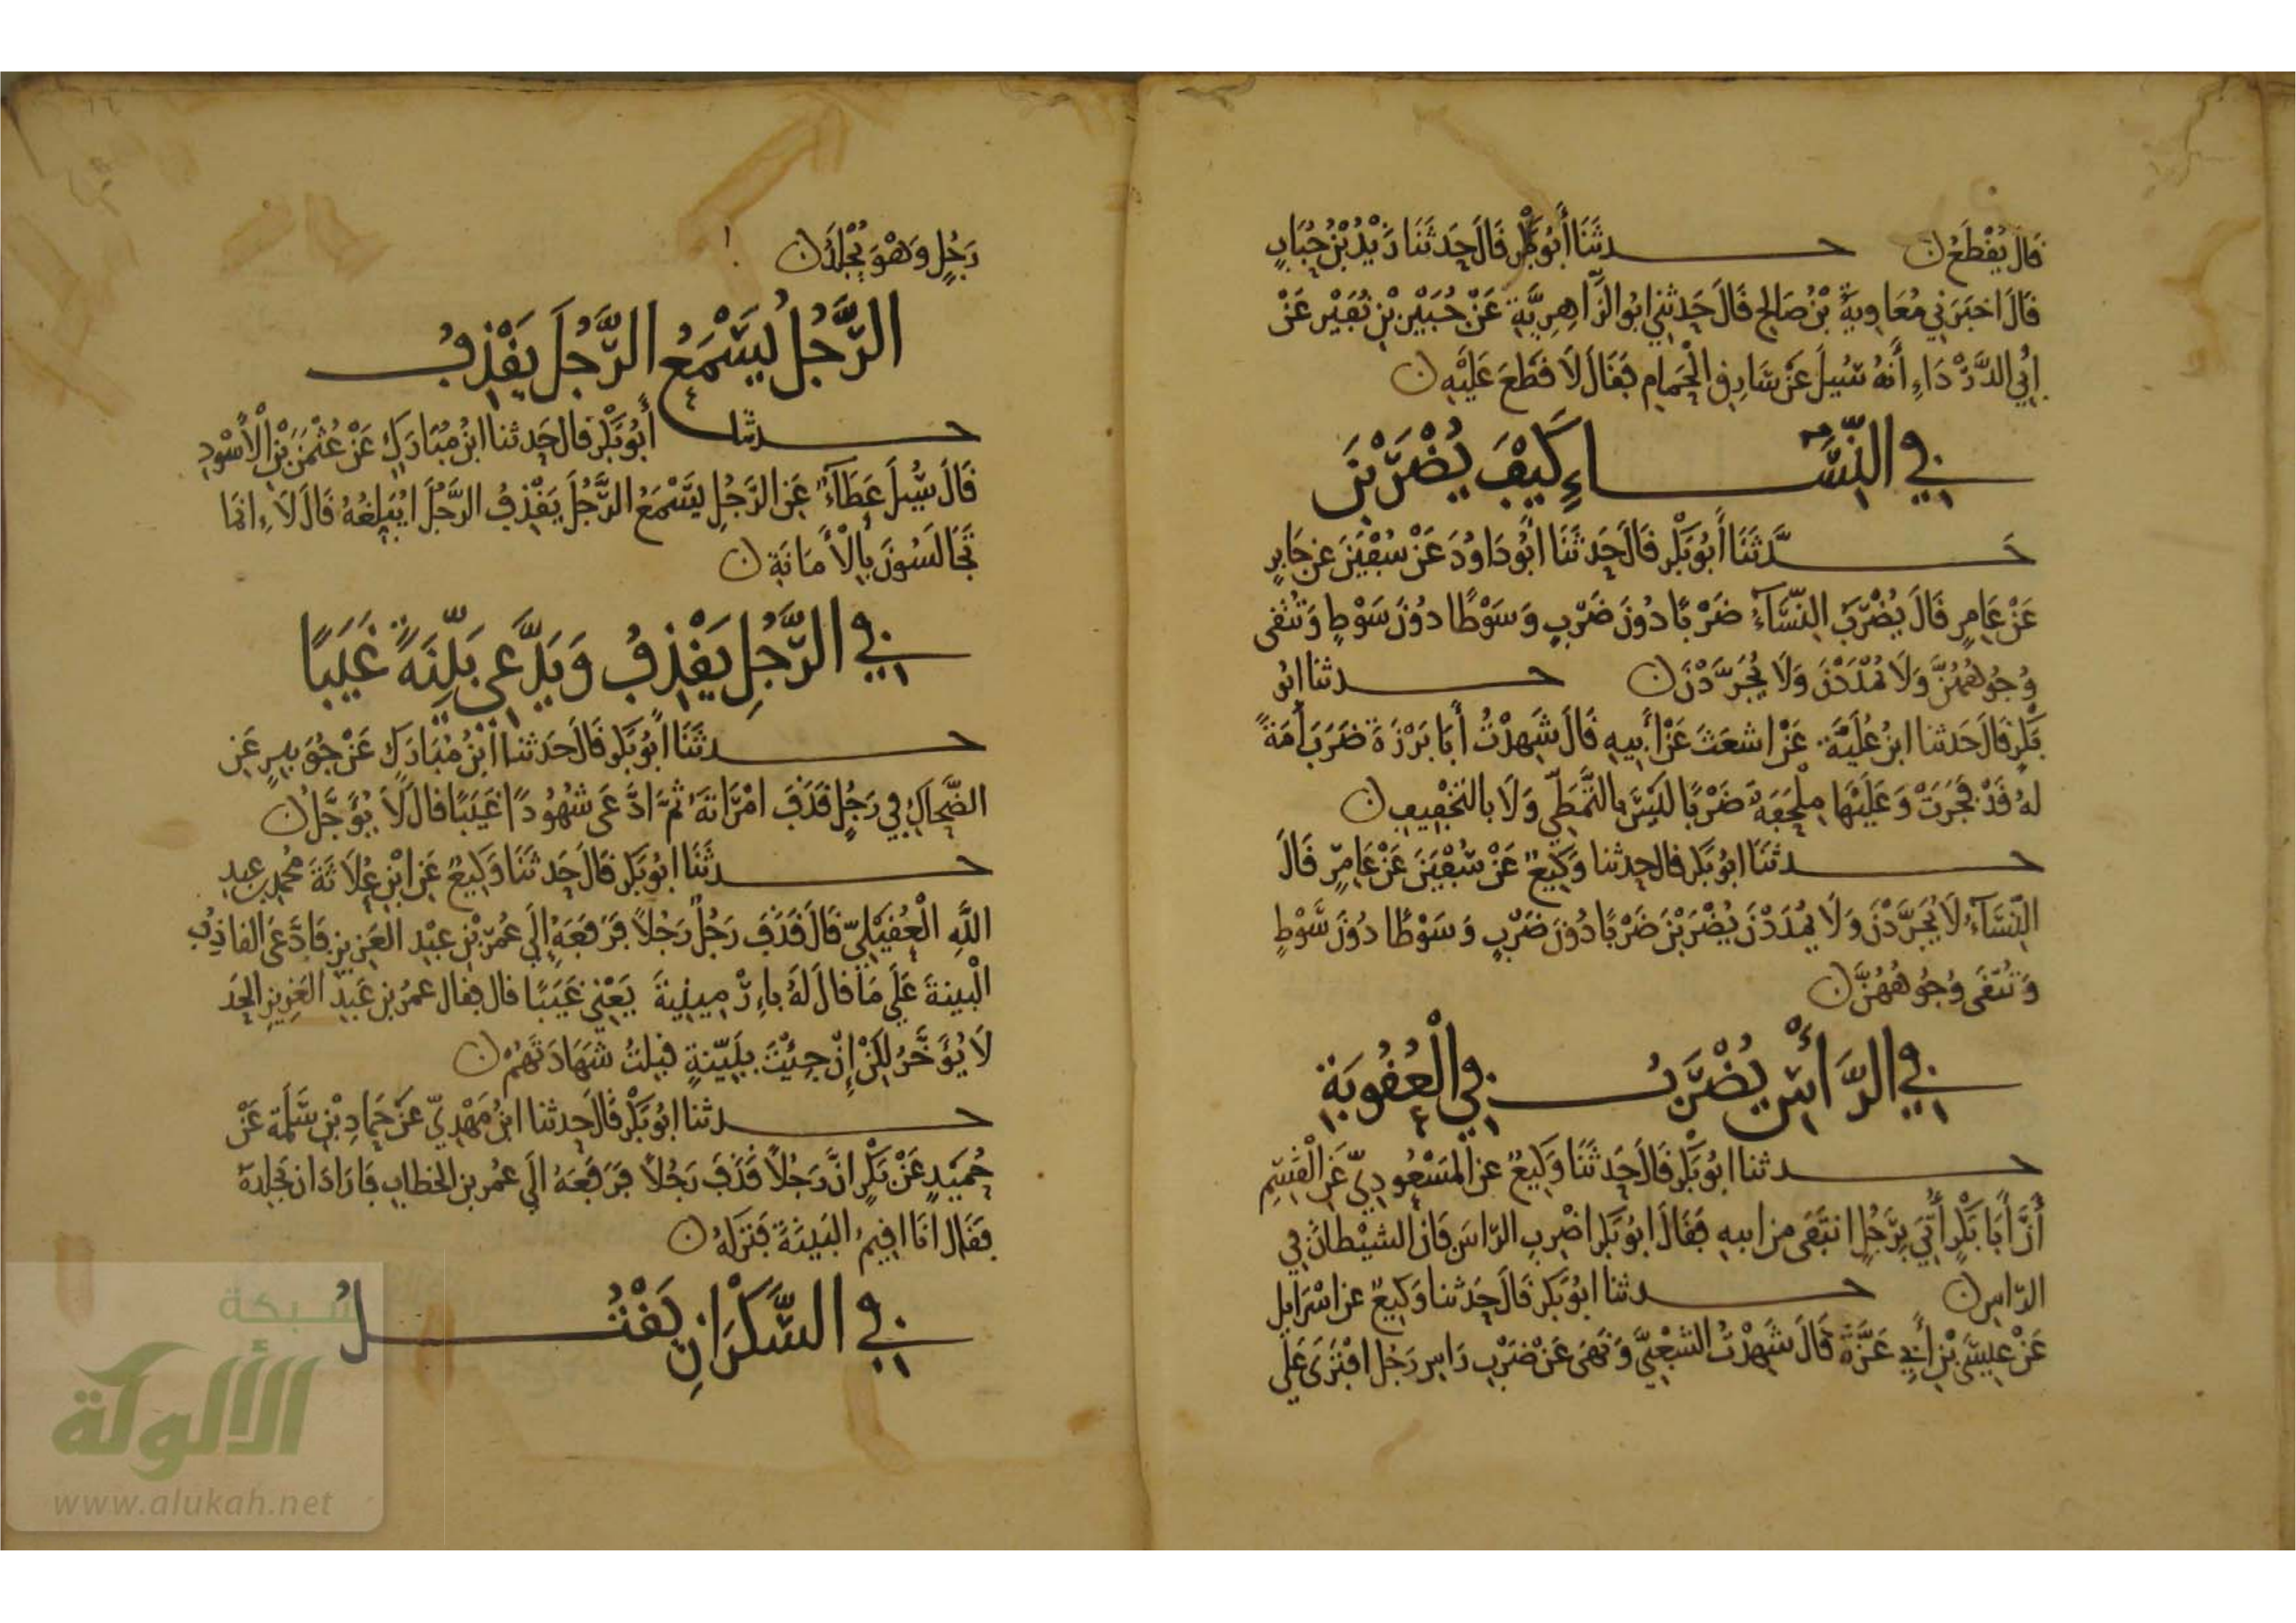 قَالَ يُقْطَعُ ن حدثَنَا أَبُو بَكْرٍ قَالَ حَدثَنَا زَيْدُ بْنُ حُبَابٍ
قَالَ اخبَرَنِي مُعَاوِيَةُ بْنُ صَالِحٍ قَالَ حَدثَنِي ابُو الزَّاهِرِيَّةِ عَنْ جُبَيْرِ بْنِ نُفَيْرٍ عَنْ
أَبِي الدَّرْدَاءِ أَنهُ سُئِيلَ عَنْ سَارِقِ الْحَمَامِ فَقَالَ لَا قَطْعَ عَلَيْهِ ن
في النِّسَاءِ كَيْفَ يُضْرَبْنَ
حَدَّثَنَا أَبُو بَكْرٍ قَالَ حَدثَنَا أَبُو دَاوُدَ عَنْ سُفْيَنَ عن جَابِرٍ
عَنْ عَامِرٍ قَالَ يُضْرَبُ النِّسَآءُ ضَرْبًا دُونَ ضَرْبٍ وَسَوْطًا دُونَ سَوْطٍ وَتُتَّقَى
وُجُوهُهُنَّ وَلَا يُمْدَدْنَ وَلَا يُجَرَّدْنَ ن حدثنَا ابُو
بَكْرٍ قَالَ حَدثنا ابنُ عُلَيَّةَ عَنْ اشعَثَ عَنْ أَبِيهِ قَالَ شَهِدْتُ أَبَا بَرْزَةَ ضَرَبَ أَمَةً
لهُ قَدْ فَجَرَتْ وَعَلَيْهَا مِلْحَفَةٌ ضَرْبًا لَيْسَ بِالتَّمَطِّي وَلَا بالتَخْفِيفِ ن
حدثنَا ابُو بَكْرٍ قال حدثنا وَكِيعٌ عَنْ سُفْيَنَ عَنْ عَامِرٍ قَالَ
النِّسَآءُ لَا يُجَرَّدْنَ وَلَا يُمْدَدْنَ يُضْرَبْنَ ضَرْبًا دُونَ ضَرْبٍ وَسَوْطًا دُونَ سَوْطٍ
وَتُتَّقَى وُجُوهُهُنَّ ن
في الرَّأْسِ يُضْرَبُ في الْعُقُوبَةِ
حدثنا ابُو بَكْرٍ قَالَ حَدثَنَا وَكِيعٌ عن المَسْعُودِيِّ عَنِ الْقَسِمِ
أَنَّ أَبَا بَكْرٍ أُتِيَ بِرَجُلٍ انتَفَى من ابيهِ فَقَالَ ابُو بَكْرٍ اضْرِبِ الرّاسَ فَانَّ الشيْطَانَ فِي
الرّاسِ ن حدثنا ابُو بَكْرٍ قَالَ حَدثنا وَكِيعٌ عن اسْرَايل
عَنْ عِيسَى بْنِ أَبِي عَزَّةَ قَالَ شَهِدْتُ الشَعْبِيَّ وَنَهَى عَنْ ضَرْبِ رَاسِ رَجُلٍ افْتَرَى عَلَى
رَجُلٍ وَهْوَ يُجْلَدُ ن
الرَّجُلُ يَسْمَعُ الرَّجُلَ يَقْذِفُ
حدثنا أَبُو بَكْرٍ قال حَدثنا ابنُ مُبَارَكٍ عَنْ عُثْمَنَ بْنِ الْأَسْوَدِ
قَالَ سُيلَ عَطَآءٌ عَنِ الرَّجُلِ يَسْمَعُ الرَّجُلَ يَقْذِفُ الرَّجُلَ ايُبَلِّغُهُ قَالَ لَا انمَا
تَجَالَسُونَ بِالْأَمَانَةِ ن
في الرَّجُلِ يَقْذِفُ وَيَدَّعِي بَيِّنَةً غَيَبًا
حدثَنَا أَبُو بَكْرٍ قَالَ حَدثنا ابْنُ مُبَارَكٍ عَنْ جُوَيبِرٍ عَنِ
الضَّحَاكِ فِي رَجُلٍ قَذَفَ امْرَاتَهُ ثُمَّ ادَّعَى شُهُودًا غَيَبًا قَالَ لَا يُؤَجَّلُ ن
حدثَنَا ابُو بَكْرٍ قَالَ حَدثَنَا وَكِيعٌ عَنِ ابْنِ عُلَاثَةَ مُحَمَدِ بنِ عبدِ
اللَّهِ الْعُقَيْلِيِّ قَالَ قَذَفَ رَجُلٌ رَجُلًا فَرَفَعَهُ إِلَى عُمَرَ بْنِ عبْدِ العَزِيزِ فَادَّعَى القاذِفُ
الْبينةَ عَلَى مَا قَالَ لَهُ بِاءِرْمِينِيةَ يَعْنِي غَيَبًا قال فقال عمرُ بن عَبدِ العَزِيزِ الحَدُ
لَا يُؤَخَّرُ لكِنْ إِنْ جِئْتَ بِبَيِّنَةٍ قبِلتُ شَهَادَتَهُمْ ن
حدثنا ابُو بَكْرٍ قَالَ حَدثنا ابنُ مَهْدِيٍّ عَنْ حَمَادِ بْنِ سَلَمَة عَنْ
حُمَيْدٍ عَنْ بَكْرٍ انَّ رَجُلًا قَذَفَ رَجُلًا فَرَفَعَهُ الَى عمُر بن الخطابِ فَارَادَ ان يَجْلِدَهُ
فَقَالَ انَا اقِيمُ البَيِنَةَ فَتَرَكَهُ ن
في السَّكْرَانِ يَقْتُلُ
شبكة
الألوكة
www.alukah.net